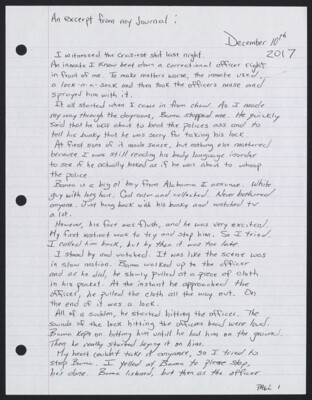 An excerpt from my Journal:
December 10th
2017
I witnessed the craziest shit last night.
An inmate I know beat down a correctional officer right
in front of me. To make matters worse, the inmate used
a lock-n-a-sock and then took the officers mase and
sprayed him with it.
It all started when I came in from chow. As I made
my way through the dayroom, Bama stopped me. He quickly
said that he was about to beat the polices ass and to
tell his bunky that he was sorry for taking his lock.
At first none of it made sense, but nothing else mattered
because I was still reading his body language inorder
to see if he actually looked as if he was about to whoop
the police.
Bama is a big ol boy from Alabama I assume. White
guy with long hair. Cool calm and collected. Never bothered
anyone. Just hung back with his bunky and watched tv
a lot.
However, his face was flush, and he was very excited.
My first instinct was to try and stop him. So I tried.
I called him back, but by then it was too late.
I stood by and watched. It was like the scene was
in slow motion. Bama walked up to the officer
and as he did, he slowly pulled at a piece of cloth
in his pocket. At the instant he approached the
officer, he pulled the cloth all the way out. On
the end of it was a lock.
All of a sudden, he started hitting the officer. The
sounds of the lock hitting the officers head were loud.
Bama kept on hitting him until he had him on the ground.
Then he really started laying it on him.
My heart couldn't take it anymore, so I tried to
stop Bama. I yelled at Bama to please stop,
he's done. Bama listened, but then as the officer
PAGE 1